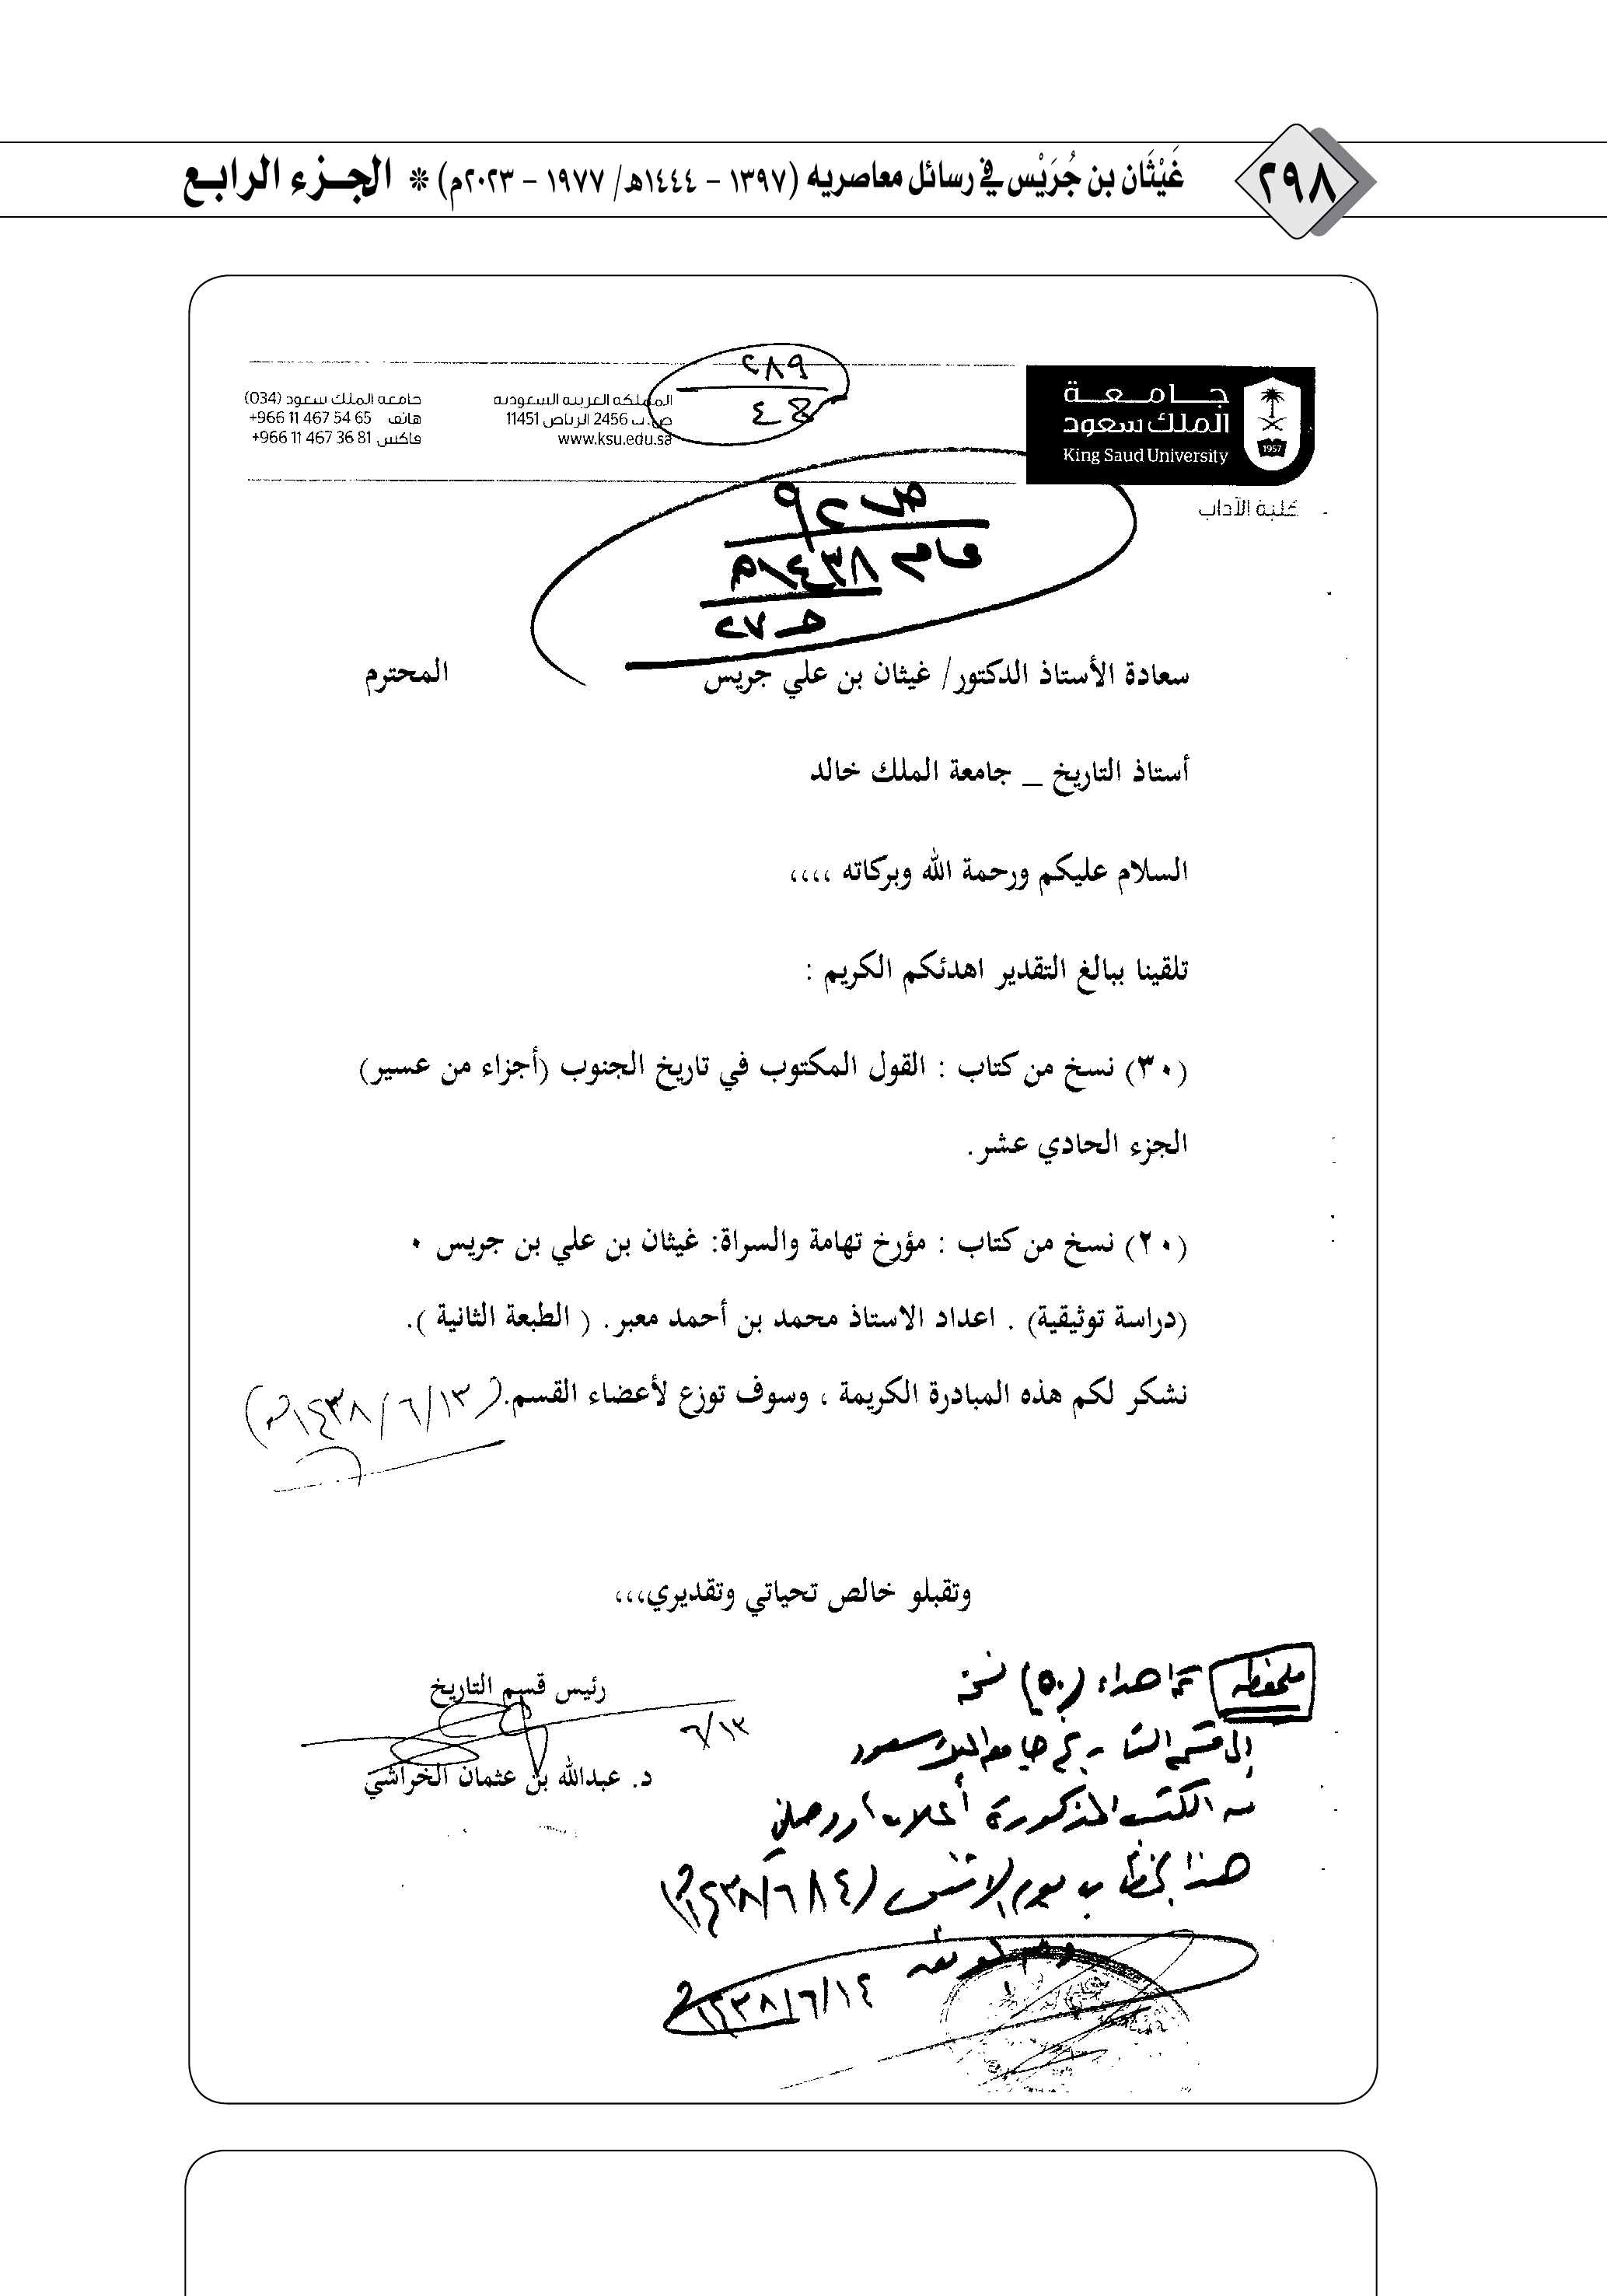 ٢٩٨
غَيْثَان بن جُرَيْس في رسائل معاصريه (١٣٩٧ – ١٤٤٤هـ/ ١٩٧٧ – ٢٠٢٣م) * الجزء الرابع
جامعة
الملك سعود
King Saud University
1957
كلية الآداب
المملكة العربية السعودية
ص.ب 2456 الرياض 11451
www.ksu.edu.sa
جامعة الملك سعود (034)
هاتف +966 11 467 54 65
فاكس +966 11 467 36 81
٢٨٩
عام ١٤٣٨هـ
سعادة الأستاذ الدكتور/ غيثان بن علي جريس المحترم
أستاذ التاريخ _ جامعة الملك خالد
السلام عليكم ورحمة الله وبركاته ،،،،
تلقينا ببالغ التقدير اهدئكم الكريم :
(٣٠) نسخ من كتاب : القول المكتوب في تاريخ الجنوب (أجزاء من عسير)
الجزء الحادي عشر.
(٢٠) نسخ من كتاب : مؤرخ تهامة والسراة: غيثان بن علي بن جريس ٠
(دراسة توثيقية) . اعداد الاستاذ محمد بن أحمد معبر. ( الطبعة الثانية ).
نشكر لكم هذه المبادرة الكريمة ، وسوف توزع لأعضاء القسم. (١٣/ ٦/ ١٤٣٨هـ)
وتقبلو خالص تحياتي وتقديري،،،
رئيس قسم التاريخ
٦/١٣
د. عبدالله بن عثمان الخراشي
ملحوظة تم اهداء (٥٠) نسخة
إلى قسم التاريخ جامعة الملك سعود
من الكتب المذكورة أعلاه، ووصلني
هذا الخطاب يوم الاثنين (١٤/٦/١٤٣٨هـ)
١٤٣٨/٦/١٤هـ